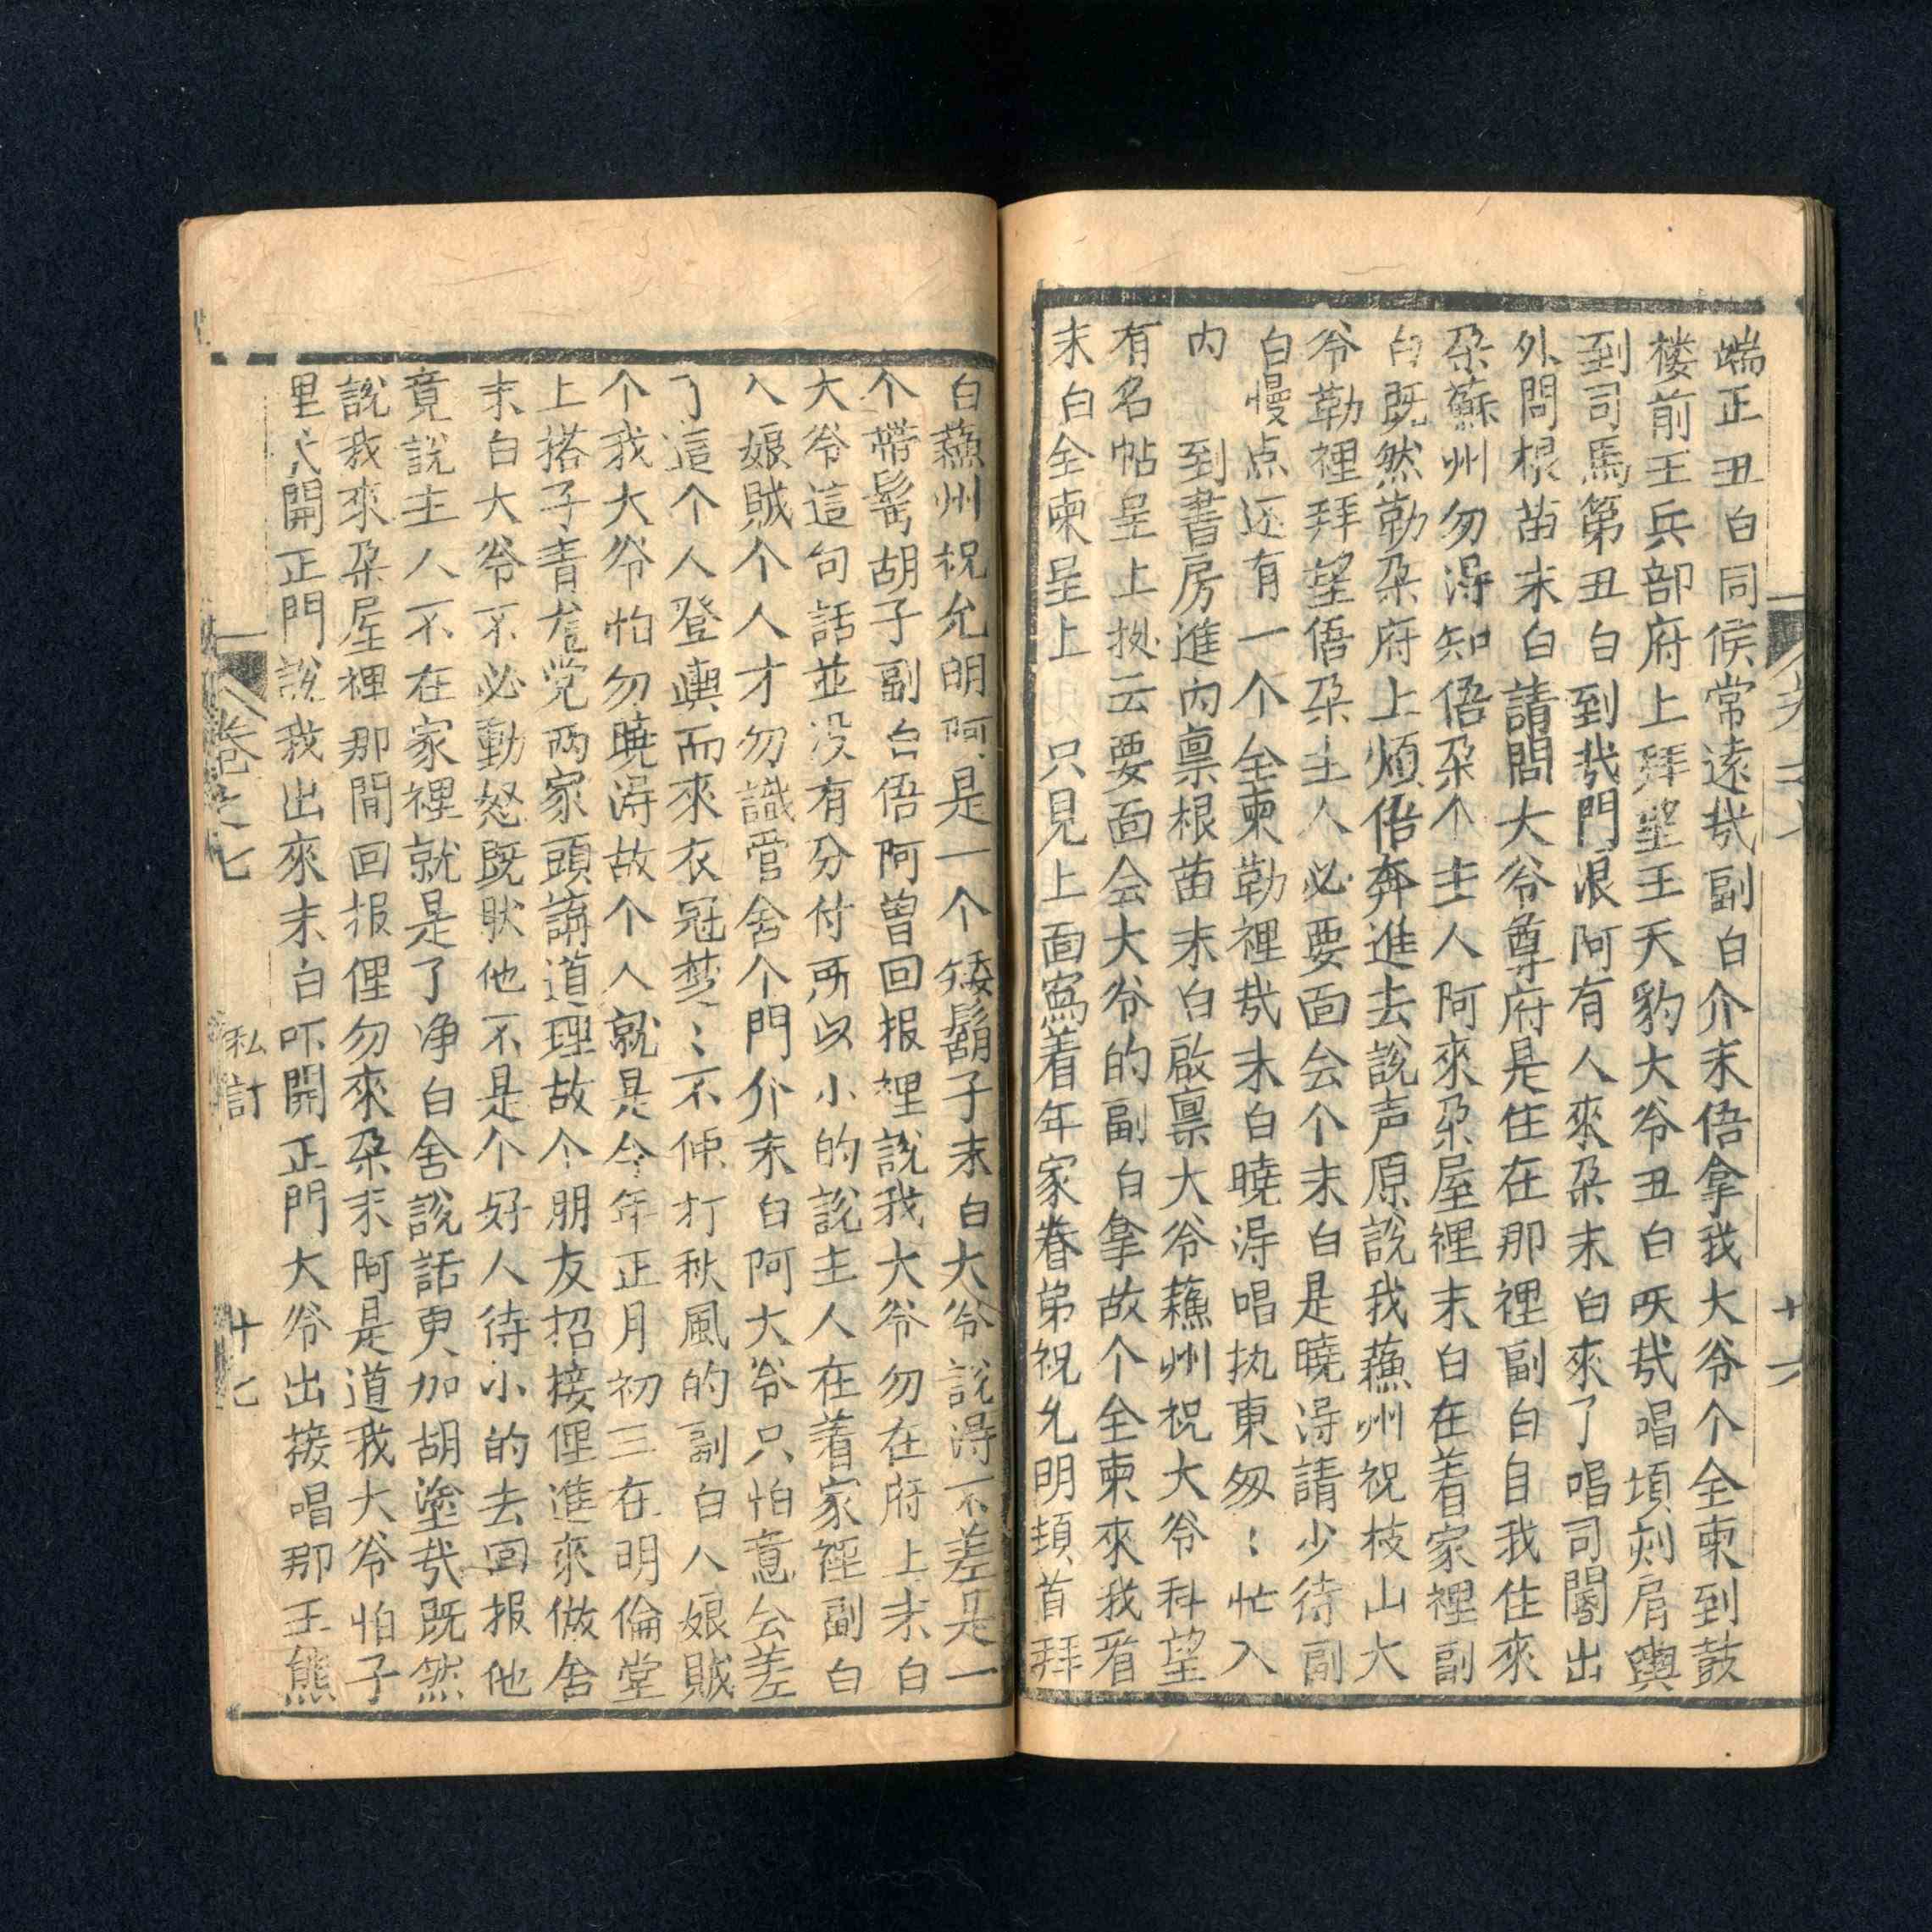 端正丑白同候常遠哉副白介末俉拿我大爷个全柬到鼓
楼前王兵部府上拜望王天豹大爷丑白哎哉唱頃刻肩輿
到司馬第丑白到哉門浪阿有人來朶末白來了唱司閽出
外問根苗末白請問大爷尊府是住在那裡副白自我住來
朶蘇州勿淂知俉朶个主人阿來朶屋裡末白在着家裡副
白既然勒朶府上煩俉奔進去說声原說我蘓州祝枝山大
爷勒裡拜望俉朶主人必要面会个末白是曉淂請少待副
白慢点还有一个全柬勒裡哉末白曉淂唱执柬匆〻忙入
内　到書房進内禀根苗末白啟禀大爷蘓州祝大爷科望
有名帖呈上挍云要面会大爷的副白拿故个全柬來我看
末白全柬呈上　只見上面寫着年家眷弟祝允明頓首拜
白蘓州祝允明阿是一个矮鬍子末白大爷說淂不差是一
个帶髩胡子副白俉阿曾回报裡說我大爷勿在府上末白
大爷這句話並没有分付所以小的說主人在着家裡副白
入娘賊个人才勿識管舍个門介末白阿大爷只怕意公差
了這个人登輿而來衣冠楚〻不便打秋風的副白入娘賊
个我大爷怕勿曉淂故个人就是今年正月初三在明倫堂
上搭子青㡳党兩家頭講道理故个朋友招接俚進來做舍
末白大爷不必動怒既肰他不是个好人待小的去回报他
竟說主人不在家裡就是了净白舍說話更加胡塗哉既然
說我來朶屋裡那間回报俚勿來朶末阿是道我大爷怕子
里𠆢開正門說我出來末白吓開正門大爷出接唱那王熊
卷之七　私訂　十七